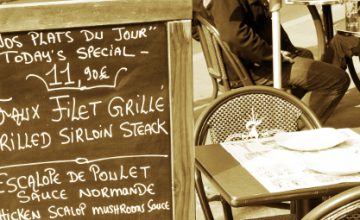 NOS PLATS DU JOUR"
TODAY'S SPECIAL -
11,90€
FAUX FILET GRILLÉ
GRILLED SIRLOIN STEACK
ESCALOPE DE POULET
SAUCE NORMANDE
CHICKEN SCALOP MUSHROOMS SAUCE